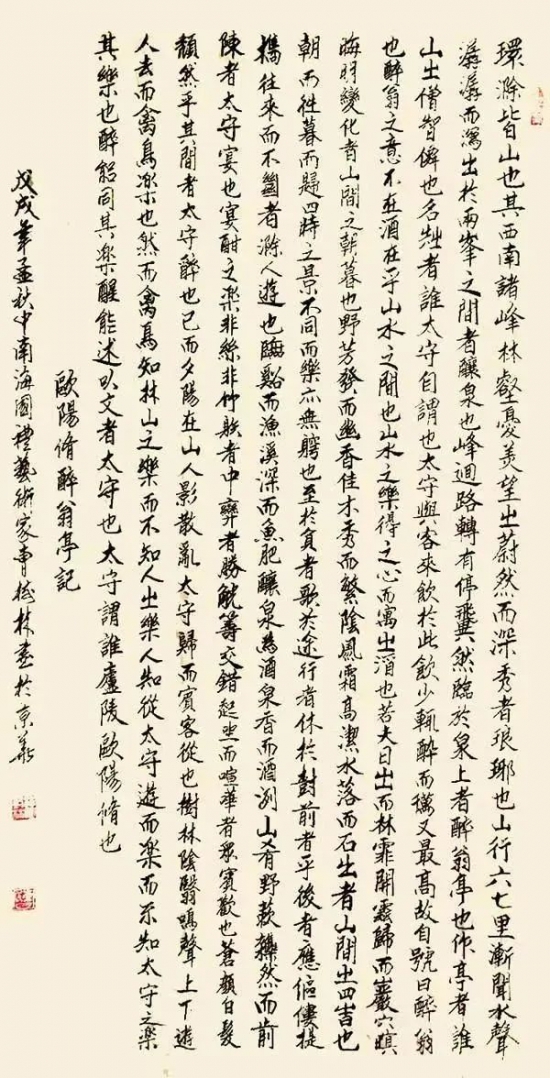 環滁皆山也其西南諸峰林壑憂美望出蔚然而深秀者琅琊也山行六七里漸聞水聲
潺潺而瀉出於兩峯之間者釀泉也峰迴路轉有停飛然臨於泉上者醉翁亭也作亭者誰
山出僧智僊也名㞢者誰太守自謂也太守與客來飲於此飲少輒醉而又最高故自號曰醉翁
也醉翁之意不在酒在乎山水之間也山水之樂得之心而寓出酒也若夫日出而林霏開靈歸而巖穴暝
晦明變化者山間之朝暮也野芳發而幽香佳木秀而繁陰風霜高潔水落而石出者山間出四吉也
朝而徃暮而歸四時之景不同而樂亦無窮也至於負者歌於途行者休於對前者乎後者應傴僂提
攜往來而不絕者滁人遊也臨谿而漁溪深而魚肥釀泉為酒泉香而酒洌山肴野蔌雜然而前
陳者太守宴也宴酣之樂非絲非竹躲者中弈者勝觥籌交錯起坐而喧華者眾賓歡也蒼顏白髮
頹然乎其間者太守醉也已而夕陽在山人影散亂太守歸而賓客從也樹林陰翳鳴聲上下遊
人去而禽鳥樂也然而禽鳥知林山之樂而不知人出樂人知從太守遊而樂而不知太守之樂
其樂也醉能同其樂醒能述以文者太守也太守謂誰廬陵歐陽脩也
歐陽脩醉翁亭記
戊戌年孟秋中南海國禮藝術家曹林書於京華